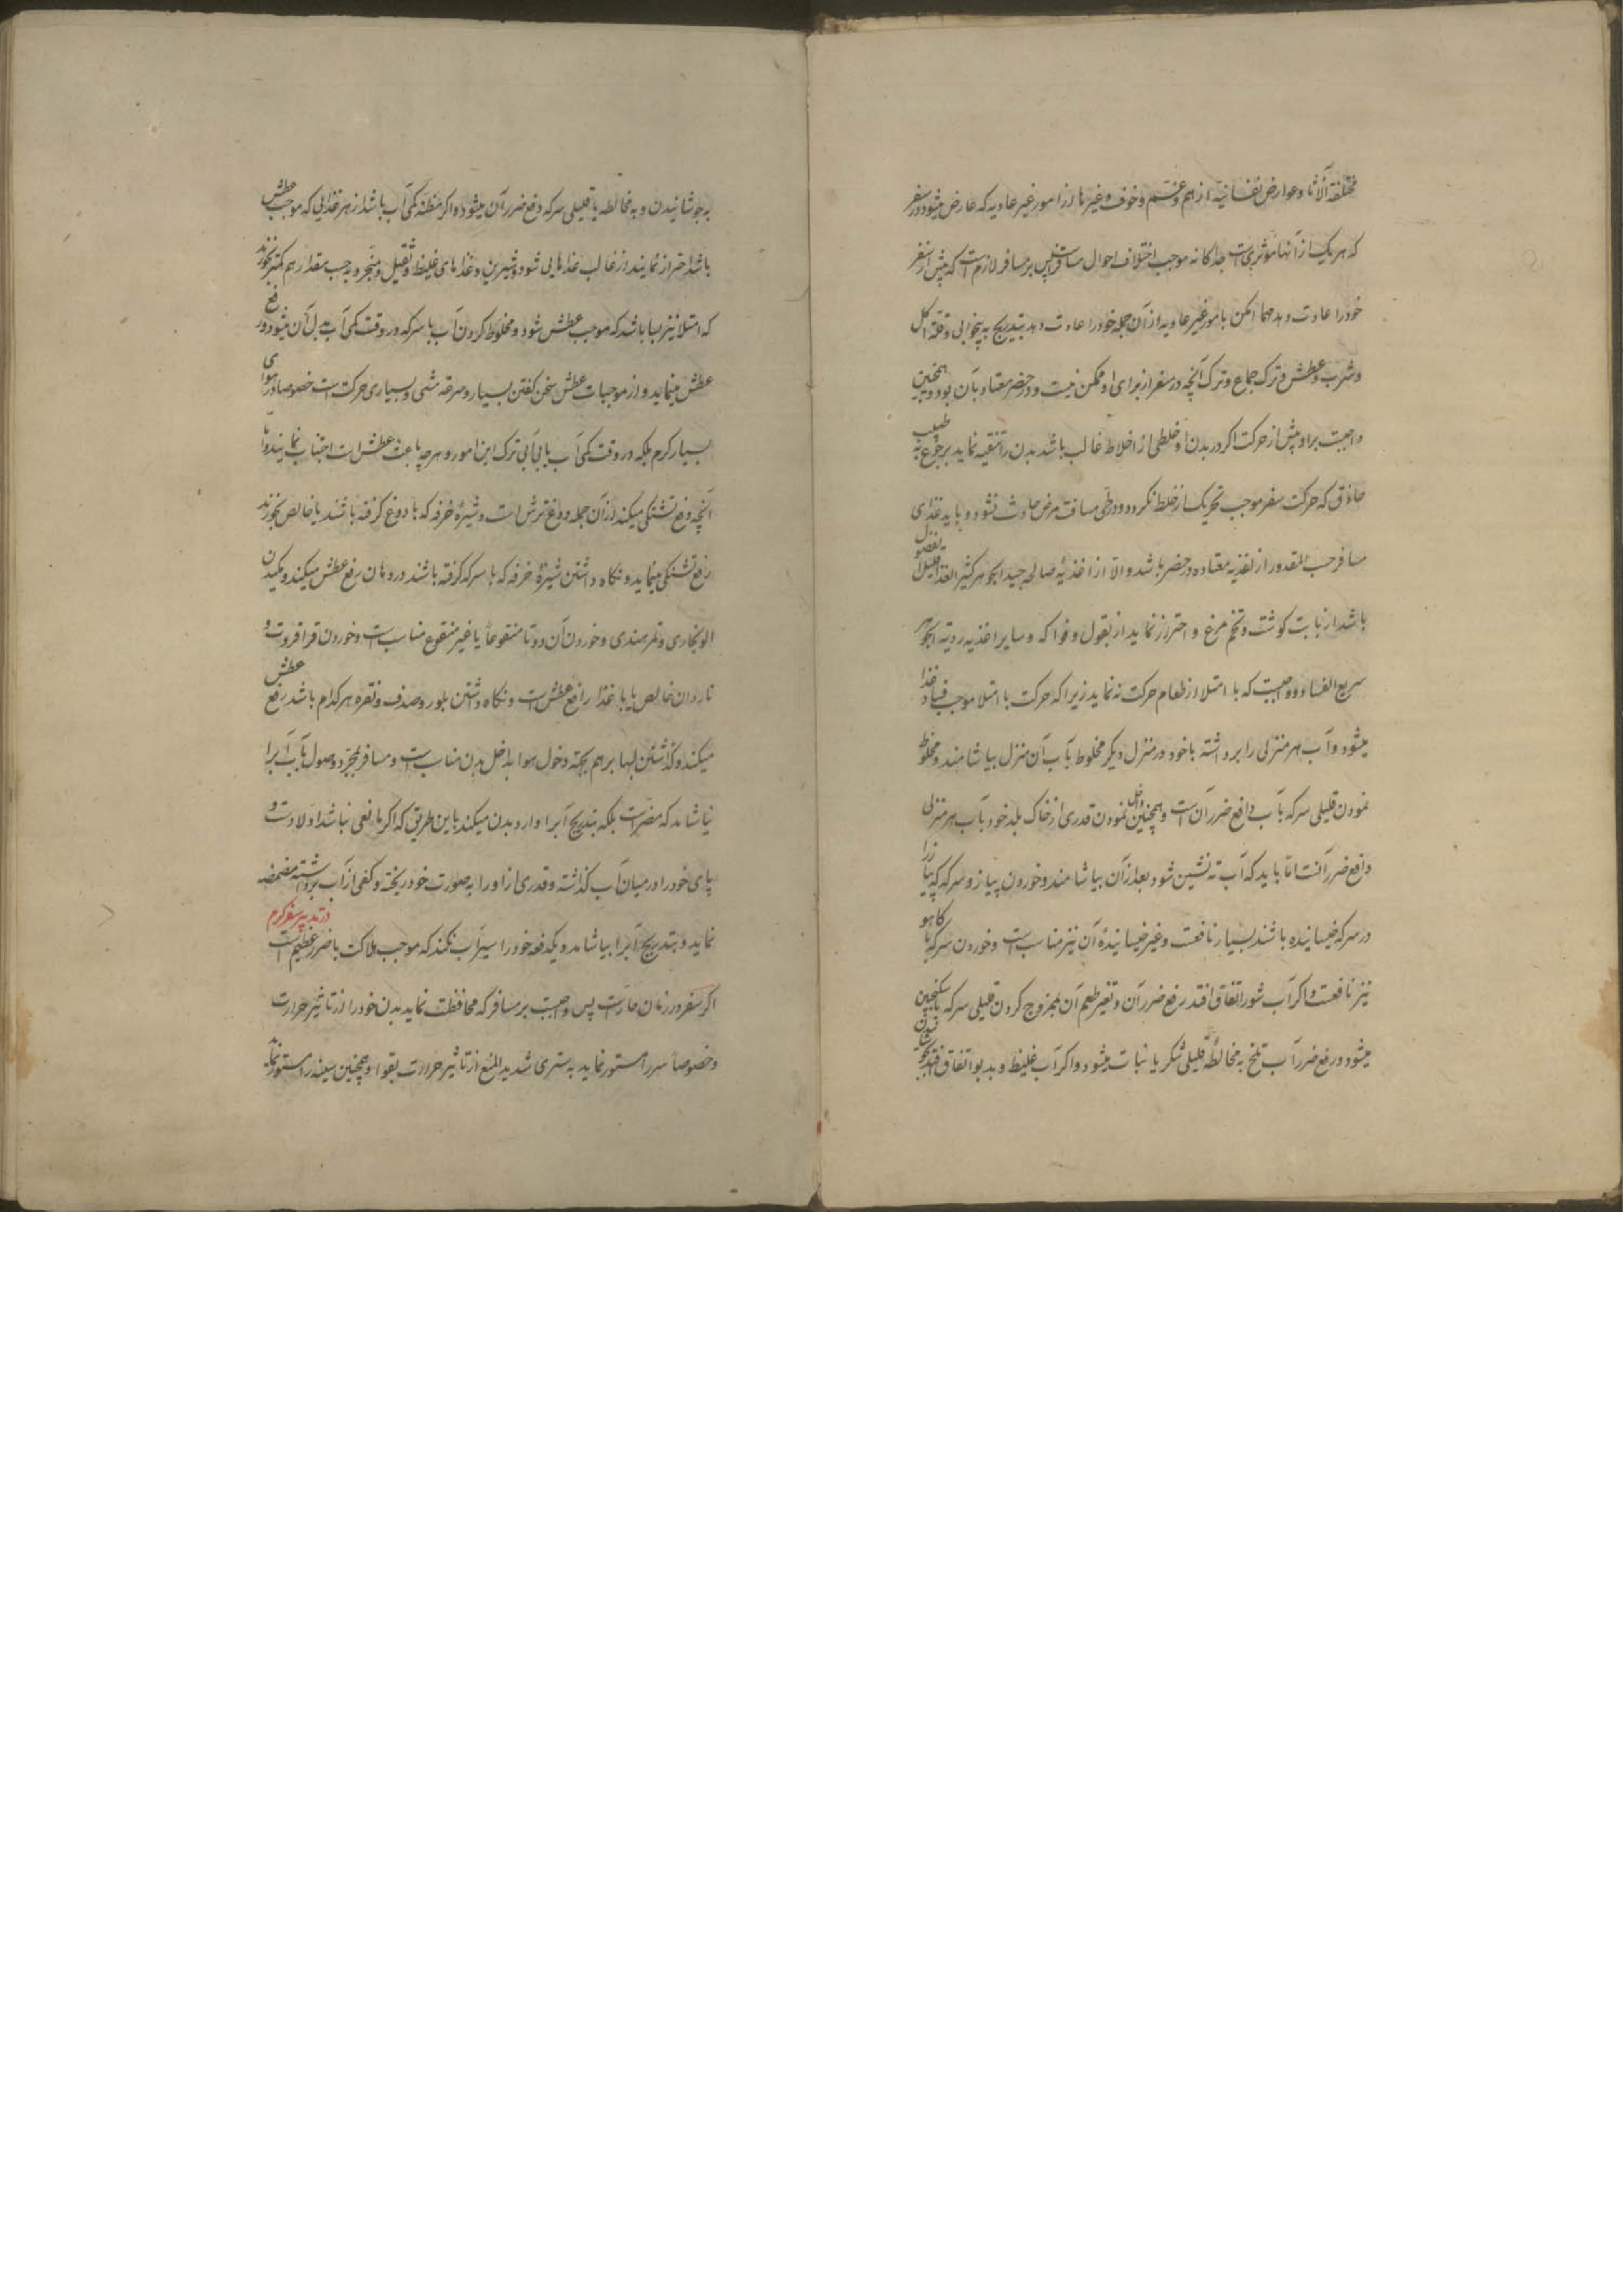 مختلفة الآثار و عوارض نفسانیه از هم و غم و خوف و غیرها و از امور غیر عادیه که عارض میشود در سفر
که هر یک از آنها مؤثریست جداکانه موجب اختلاف احوال مسافر پس بر مسافر لازم است که پیش از سفر
خود را عادت دهد مهما امکن بامور غیر عادیه از آن جمله خود را عادت دهد بتدریج به بیخوابی و قلة اکل
و شرب و عطش و ترک جماع و ترک آنچه در سفر از برای او ممکن نیست و در حضر معتاد بآن بوده و همچنین
واجبست بر او پیش از حرکت اکر در بدن او خلطی از اخلاط غالب باشد بدن را تنقیه نماید برجوع به طبیب
حاذق که حرکت سفر موجب تحریک از خلط نکردد و در طی مسافت مرض حادث نشود و باید غذای
مسافر حسب المقدور از اغذیه معتاده در حضر باشد و الا از اغذیه صالحه جید الجوهر کثیر الغذا قلیل الفضول
باشد از بابت کوشت و تخم مرغ و احتراز نماید از بقول و فواکه و سایر اغذیه ردیة الجوهر
سریع الفساد و واجبست که با امتلا از طعام حرکت نه نماید زیرا که حرکت با امتلا موجب فساد غذا
میشود و آب هر منزلی را برداشته با خود در منزل دیکر مخلوط بآب آن منزل بیاشامند و مخلوط
نمودن قلیلی سرکه بآب دافع ضرر آن است و همچنین داخل نمودن قدری از خاک بلد خود بآب هر منزلی
دافع ضرر آنست اما باید که آب ته نشین شود بعد از آن بیاشامند و خوردن پیاز و سرکه که پیاز را
در سرکه خیسانیده باشند بسیار نافعست و غیر خیسانیدهٔ آن نیز مناسب است و خوردن سرکه با کاهو
نیز نافعست و اکر آب شور اتفاق افتد رفع ضرر آن و تغیر طعم آن بممزوج کردن قلیلی سرکه یا سکنجبین
میشود و رفع ضرر آب تلخ به مخالطهٔ قلیلی شکر یا نبات میشود و اکر آب غلیظ و بدبو اتفاق افتد بجوشانیدن
به جوشانیدن و به مخالطه با قلیلی سرکه دفع ضرر آن میشود و اکر مظنه کمی آب باشد از هر غذایی که موجب عطش
باشد احتراز نمایند از غالب غذاهایی شور و شیرین و غذاهای غلیظ و ثقیل و منجر و به حسب مقدار هم کمتر بخورند
که امتلا نیز بسا باشد که موجب عطش شود و مخلوط کردن آب با سرکه در وقت کمی آب بدل آن میشود و رفع
عطش مینماید و از موجبات عطش سخن کفتن بسیار و سرعة مشی و بسیاری حرکت است خصوصا در هوای
بسیار کرم بلکه در وقت کمی آب یا بی آبی ترک این امور و هر چه باعث عطش است اجتناب نمایند و اما
آنچه رفع تشنکی میکند از آن جمله دوغ ترش است و شیرهٔ خرفه که با دوغ کرفته باشند یا خالص بخورند
رفع تشنکی مینماید و نکاه داشتن شیرهٔ خرفه که با سرکه کرفته باشند در دهان رفع عطش میکند و مکیدن
الو بخاری و تمر هندی و خوردن آن دو تا منقوعاً یا غیر منقوع مناسب است و خوردن قراقروت و
ناردان خالص یا با غذا رافع عطش است و نکاه داشتن بلور و صدف و نقره هر کدام باشد رفع عطش
میکند و کذاشتن لبها بر هم بجهة دخول هوا بداخل بدن مناسب است و مسافر بمجرد وصول بآب آبرا
نیاشامد که مضر است بلکه بتدریج آبرا وارد بدن میکند باین طریق که اکر مانعی نباشد اولا دست و
پای خود را در میان آب کذاشته و قدری از او را به صورت خود ریخته و کفی از آب برداشته مضمضه
نماید و بتدریج آبرا بیاشامد و یکدفعه خود را سیراب نکند که موجب هلاکت یا ضرر عظیم است
در تدبیر سفر کرم
اکر سفر در زمان حار است پس واجبست بر مسافر که محافظت نماید بدن خود را از تاثیر حرارت
و خصوصاً سر را مستور نماید به ستری شدید المنع از تاثیر حرارت بقوا و همچنین سینه را مستور نماید